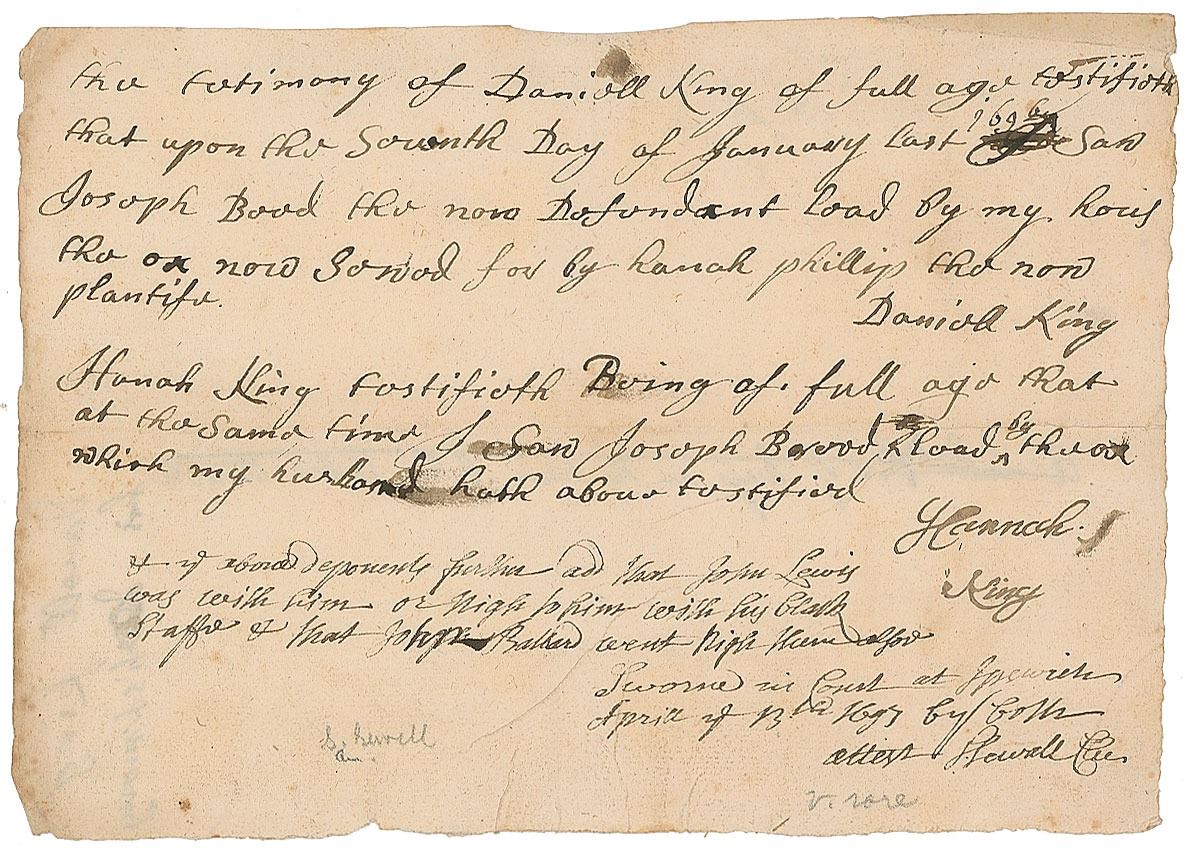 the testimony of Daniell King of full age testifieth
that upon the Seventh Day of January last 1696 Saw
Joseph Beed the now Defendant lead by my hous
the ox now Sewed for by hanah phillip the now
plantife.
Daniell King
Hanah King testifieth Being of full age that
at the Same time I Saw Joseph Breed lead by the ox
which my husband hath above testified
Hannah
King
& ye above deponents further add that John Lewis
was with him or nigh to him with his black
Staffe & that John Ballard went nigh them also
Sworne in Court at Ipswich
Aprill ye 13th 1697 by both
attest SSewall Cler
S. Sewell
v. rare